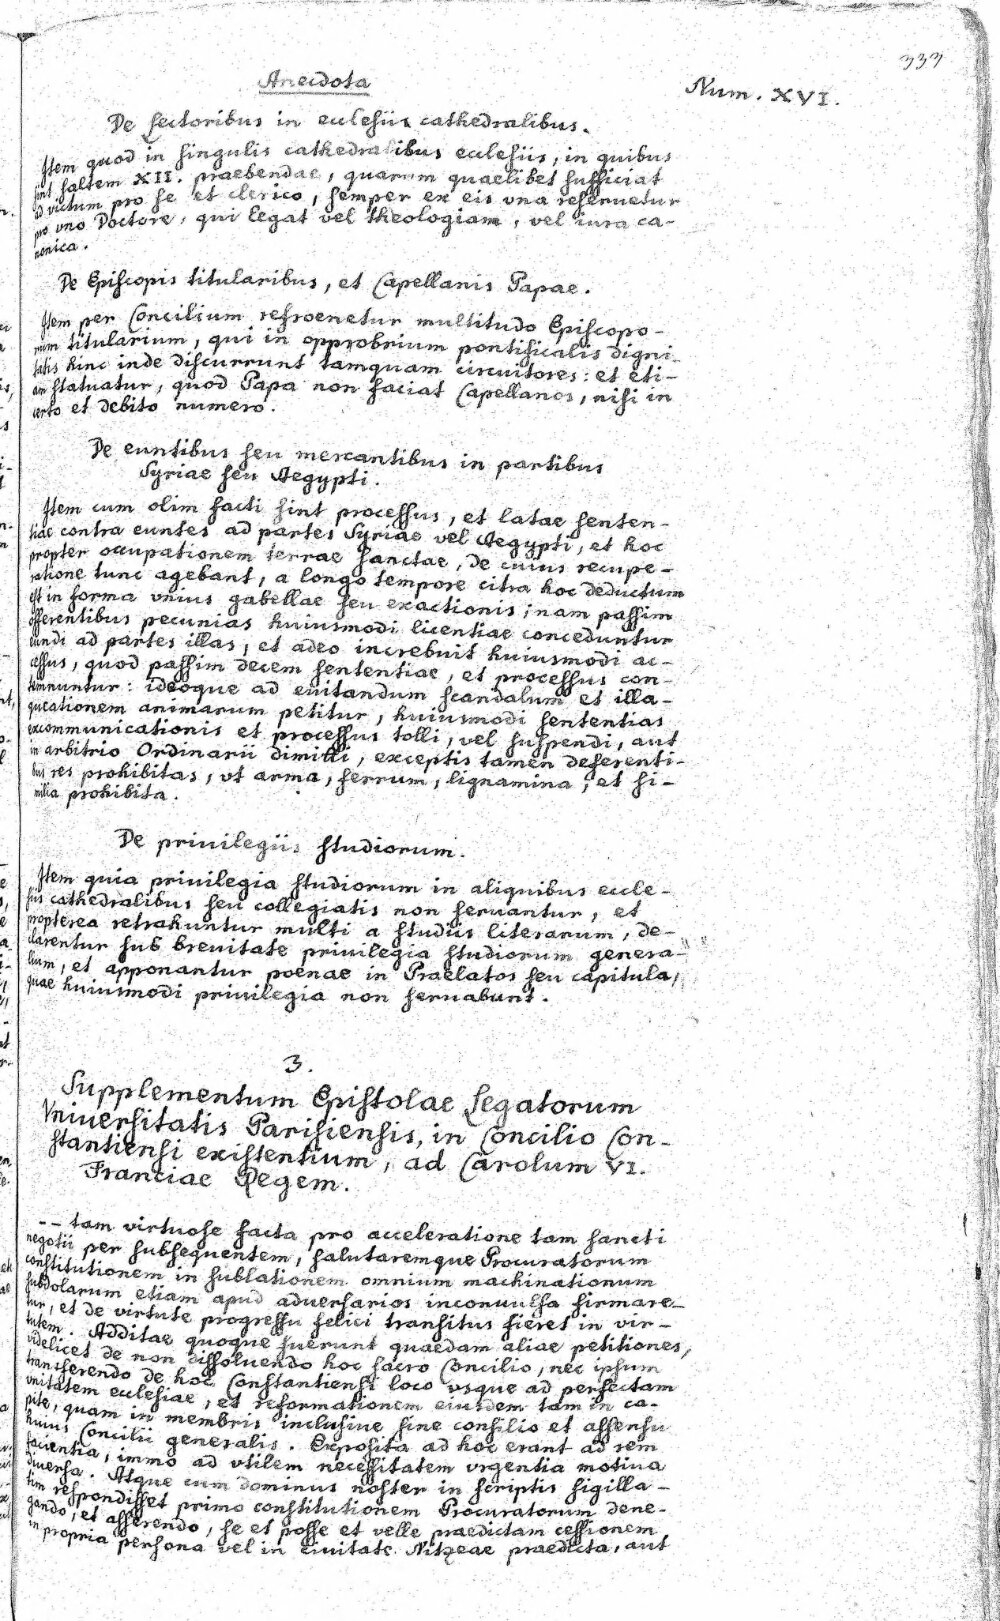 333
Anecdota
Num. XVI.
De Lectoribus in ecclesiis cathedralibus.
Item quod in singulis cathedralibus ecclesiis, in quibus
sint saltem XII. praebendae, quarum quaelibet sufficiat
ad victum pro se et clerico, semper ex eis vna reseruetur
pro vno Doctore, qui legat vel theologiam, vel iura ca-
nonica.
De Episcopis titularibus, et Capellanis Papae.
Item per Concilium refroenetur multitudo Episcopo-
rum titularium, qui in opprobrium pontificalis digni-
tatis hinc inde discurrunt tamquam circuitores: et eti-
am statuatur, quod Papa non faciat Capellanos, nisi in
certo et debito numero.
De euntibus seu mercantibus in partibus
Syriae seu Aegypti.
Item cum olim facti sint processus, et latae senten-
tiae contra euntes ad partes Syriae vel Aegypti, et hoc
propter occupationem terrae sanctae, de cuius recupe-
ratione tunc agebant, a longo tempore citra hoc deductum
est in forma vnius gabellae seu exactionis; nam passim
offerentibus pecunias huiusmodi licentiae conceduntur
eundi ad partes illas, et adeo increbuit huiusmodi ac-
cessus, quod passim decem sententiae, et processus con-
temnuntur: ideoque ad euitandum scandalum et illa-
queationem animarum petitur, huiusmodi sententias
excommunicationis et processus tolli, vel suspendi, aut
in arbitrio Ordinarii dimitti, exceptis tamen deferenti-
bus res prohibitas, vt arma, ferrum, lignamina, et si-
milia prohibita.
De priuilegiis studiorum.
Item quia priuilegia studiorum in aliquibus eccle-
siis cathedralibus seu collegiatis non seruantur, et
propterea retrahuntur multi a studiis literarum, de-
clarentur sub breuitate priuilegia studiorum genera-
lium, et apponantur poenae in Praelatos seu capitula,
quae huiusmodi priuilegia non seruabunt.
3.
Supplementum Epistolae Legatorum
Vniuersitatis Parisiensis, in Concilio Con-
stantiensi existentium, ad Carolum VI.
Franciae Regem.
-- tam virtuose facta pro acceleratione tam sancti
negotii per subsequentem, salutaremque Procuratorum
constitutionem in sublationem omnium machinationum
subdolarum etiam apud aduersarios inconuulsa firmare-
tur, et de virtute progressu felici transitus fieret in vir-
tutem. Additae quoque fuerunt quaedam aliae petitiones,
videlicet de non dissoluendo hoc sacro Concilio, nec ipsum
transferendo de hoc Constantiensi loco vsque ad perfectam
vnitatem ecclesiae, et reformationem eiusdem tam in ca-
pite, quam in membris inclusiue sine consilio et assensu
huius Concilii generalis. Exposita ad hoc erant ad rem
facientia, immo ad vtilem necessitatem vrgentia motiua
diuersa. Atque cum dominus noster in scriptis sigilla-
tim respondisset primo constitutionem Procuratorum dene-
gando, et asserendo, se et posse et velle praedictam cessionem
in propria persona vel in ciuitate Nitzeae praedicta, aut